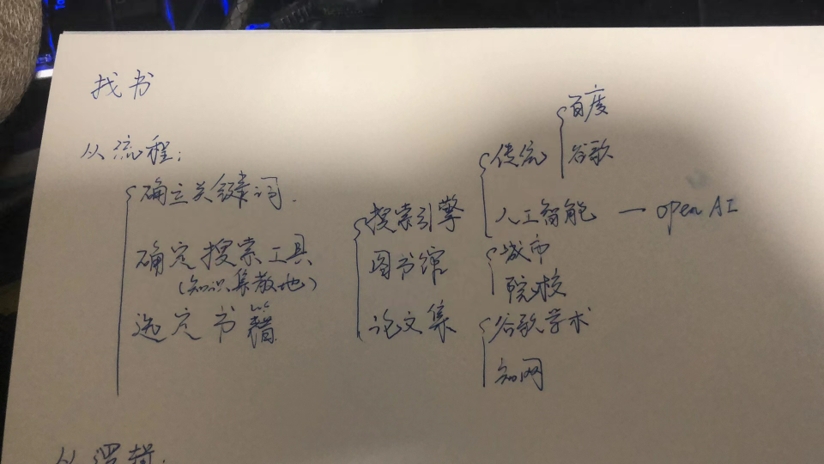 找书
从流程:
确立关键词.
确定搜索工具
(知识集散地)
选定书籍
搜索引擎
图书馆
论文集
传统
百度
谷歌
人工智能 — open AI
城市
院校
谷歌学术
知网
从逻辑: